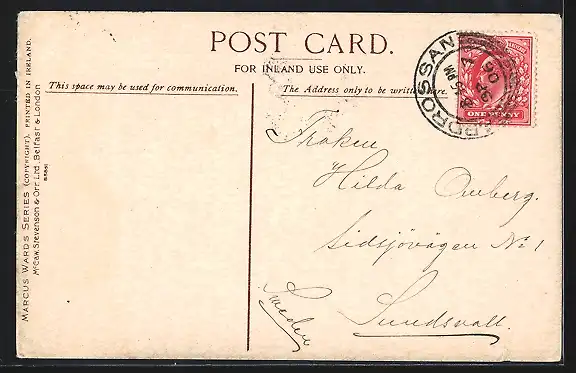 POST CARD.
FOR INLAND USE ONLY.
This space may be used for communication.
The Address only to be written here.
MARCUS WARDS SERIES (COPYRIGHT), PRINTED IN IRELAND.
McCaw, Stevenson & Orr Ltd. Belfast & London
ARDROSSAN
ONE PENNY
Froken
Hilda Omberg.
Sidsjövägen No 1
Sundsvall.
Sweden